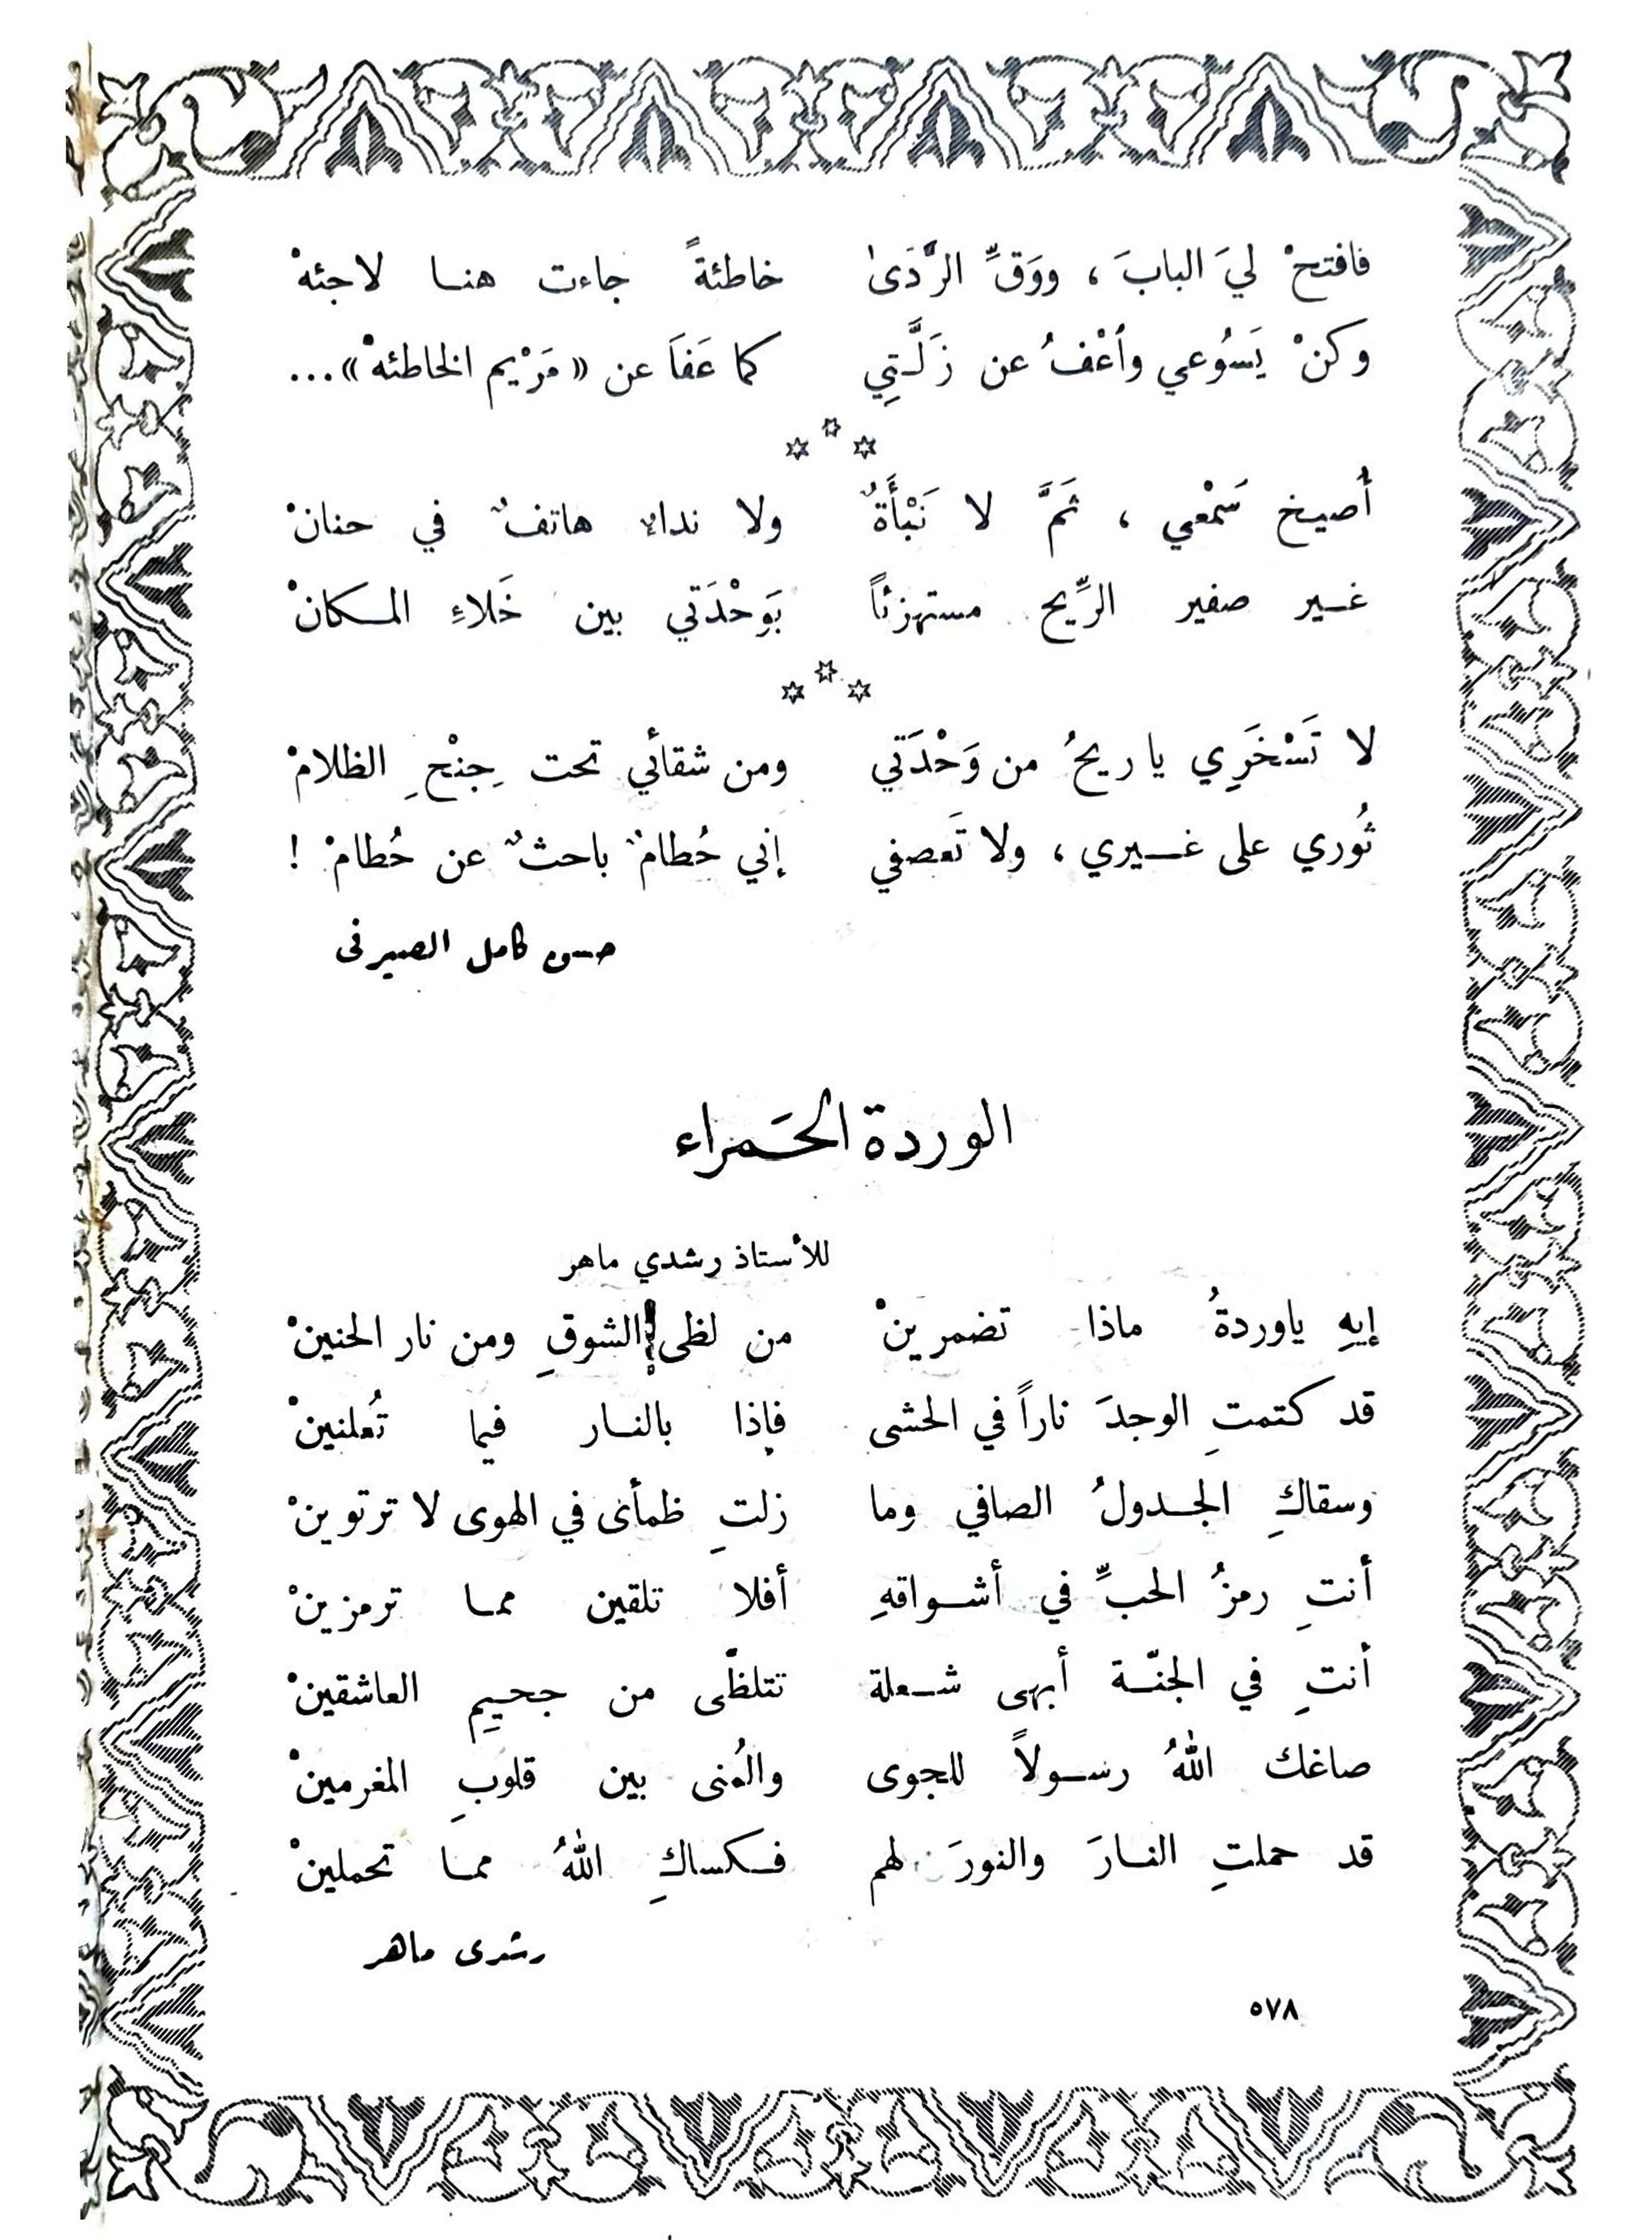 فافتحْ ليَ البابَ ، ووَقِّ الرَّدَىٰ خاطئةً جاءت هنا لاجئهْ
وكنْ يَسُوعي وأعْفُ عن زَلَّتِي كما عَفَا عن « مَرْيم الخاطئهْ » ...
أُصيخ سَمْعي ، ثَمَّ لا نَبْأَةٌ ولا نداء هاتفٌ في حنانْ
غير صفير الرِّيح مستهزئاً بَوَحْدَتي بين خَلاءِ المكانْ
لا تَسْخَرِي يا ريحُ من وَحْدَتي ومن شقائي تحت جِنْحِ الظلامْ
ثُوري على غيري ، ولا تَعصفي إني حُطامٌ باحثٌ عن حُطامْ !
حسن كامل الصيرفى
الوردة الحمراء
للأستاذ رشدي ماهر
إيهِ ياوردةُ ماذا تضمرينْ من لظى الشوقِ ومن نار الحنينْ
قد كتمتِ الوجدَ ناراً في الحشى فإذا بالنار فيما تُعلنينْ
وسقاكِ الجدولُ الصافي وما زلتِ ظمأى في الهوى لا ترتوينْ
أنتِ رمزُ الحبِّ في أشواقهِ أفلا تلقين مما ترمزينْ
أنتِ في الجنّة أبهى شعلة تتلظّى من جحيمِ العاشقينْ
صاغك اللهُ رسولاً للجوى والمُنى بين قلوبِ المغرمينْ
قد حملتِ النارَ والنورَ لهم فكساكِ اللهُ مما تحملينْ
رشدى ماهر
٥٧٨